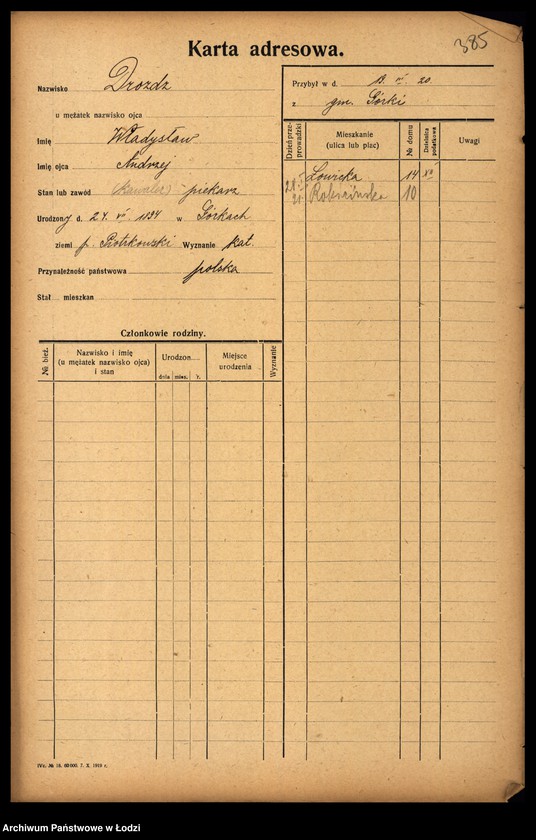 385
Karta adresowa.
Nazwisko Drożdż
u mężatek nazwisko ojca
Imię Władysław
Imię ojca Andrzej
Stan lub zawód (kawaler) piekarz
Urodzony d. 24. VI 1894 w Górkach
ziemi p. Piotrkowski Wyznanie kat.
Przynależność państwowa polska
Stał. mieszkan
Członkowie rodziny.
№ bież.
Nazwisko i imię (u mężatek nazwisko ojca) i stan
Urodzon
dnia mies. r.
Miejsce urodzenia
Wyznanie
Przybył w d. 20.
z gm. Górki
Dzień przeprowadzki
Mieszkanie (ulica lub plac)
№ domu
Dzielnica podatkowa
Uwagi
Łowicka 14 XII
21. Rokicińska 10
IVc. № 18. 60000. 7. X. 1919 r.
Archiwum Państwowe w Łodzi